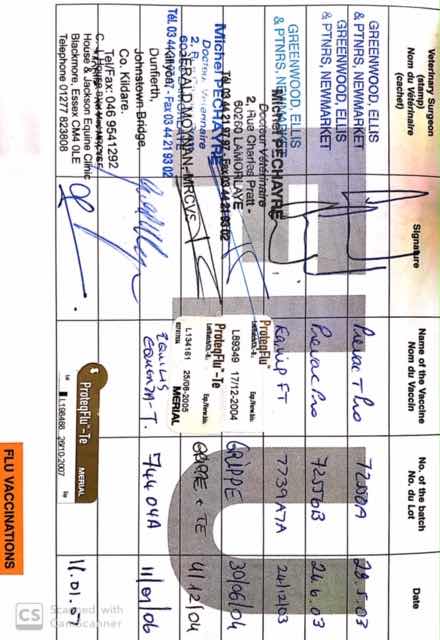 Veterinary Surgeon
(stamp)
Nom du Vétérinaire
(cachet)
Signature
Name of the Vaccine
Nom du Vaccin
No. of the batch
No. du Lot
Date
GREENWOOD, ELLIS
& PTNRS, NEWMARKET
Prevac T Pro
72550A
28.5.03
GREENWOOD, ELLIS
& PTNRS, NEWMARKET
Prevac Pro
72556B
24.6.03
GREENWOOD, ELLIS
& PTNRS, NEWMARKET
Equip FT
7739A7A
24/12/03
Michel PECHAYRE
Docteur Vétérinaire
2, Rue Charles Pratt -
60260 LAMORLAYE
Tél. 03 44 21 97 97 Fax 03 44 21 93 02
ProteqFlu
L88349 17/12/2004
GRIPPE
30/06/04
Michel PECHAYRE
Docteur Vétérinaire
Tél. 03 44 Fax 03 44 21 93 02
ProteqFlu-Te
L134161 25/06/2005
MERIAL
GRIPPE + TE
4/12/04
GERALD MRCVS
Dunfierth,
Johnstown-Bridge,
Co. Kildare.
Tel/Fax: 046 9541292
EQUILIS
EQUENZA-T.
74404A
11/01/06
House & Jackson Equine Clinic
Blackmore, Essex CM4 0LE
Telephone 01277 823808
ProteqFlu-Te
MERIAL
L198468 26/10/2007
11.01.07
FLU VACCINATIONS
CS Scanned with
CamScanner